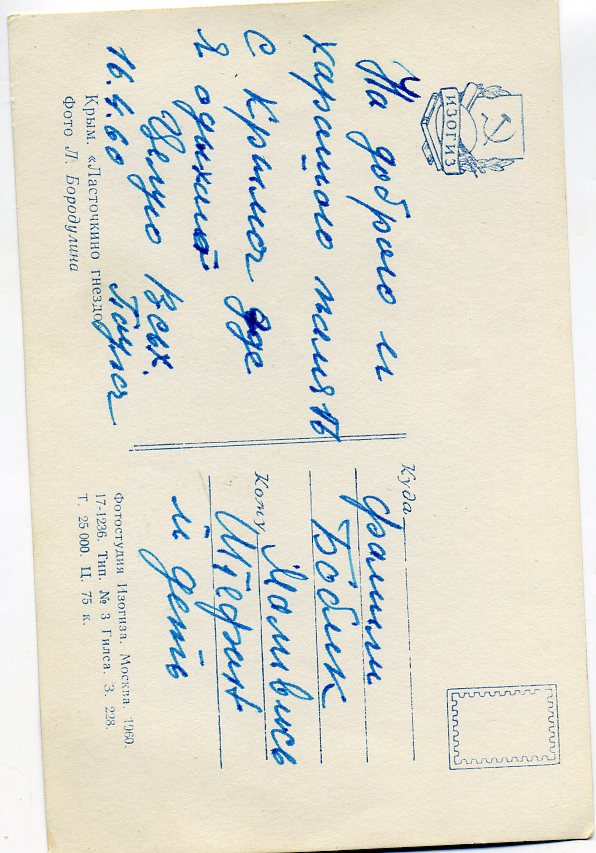 ИЗОГИЗ
На доброго и
харашого память
С Крыма где
я одыхала
Целую Всех.
16.4.60
Крым. «Ласточкино гнездо»
Фото Л. Бородулина
Куда
Фамили
Боблик
Кому
Штефан
и деть
Фотостудия Изогиза. Москва. 1960.
17-1236. Тип. № 3 Гилса. З. 228.
Т. 25 000. Ц. 75 к.